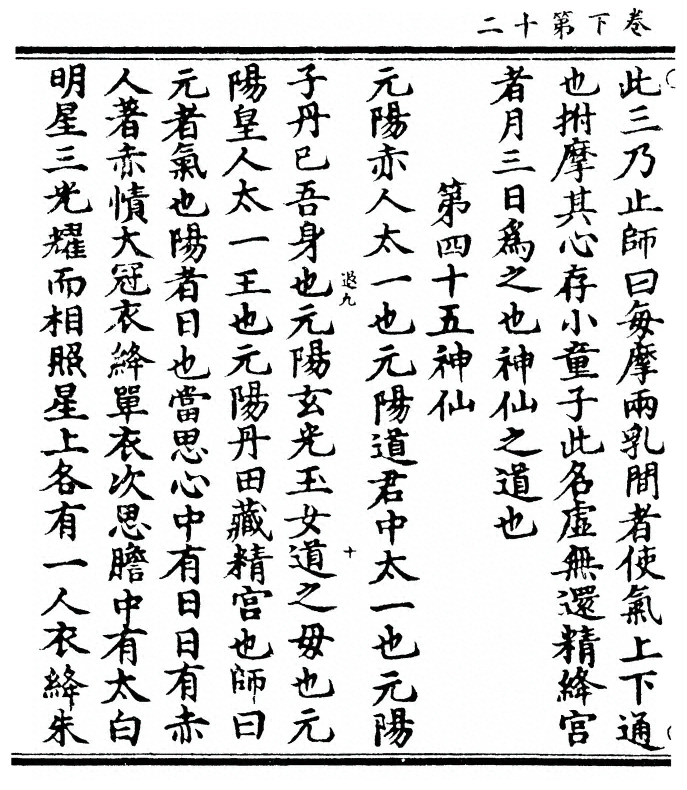 卷下第十二
此三乃止師曰每摩兩乳間者使氣上下通
也拊摩其心存小童子此名虛無還精絳宮
者月三日爲之也神仙之道也
第四十五神仙
元陽赤人太一也元陽道君中太一也元陽
退九
十
子丹巳吾身也元陽玄光玉女道之毋也元
陽皇人太一王也元陽丹田藏精宮也師曰
元者氣也陽者日也當思心中有日日有赤
人著赤幘大冠衣絳單衣次思膽中有太白
明星三光耀而相照星上各有一人衣絳朱